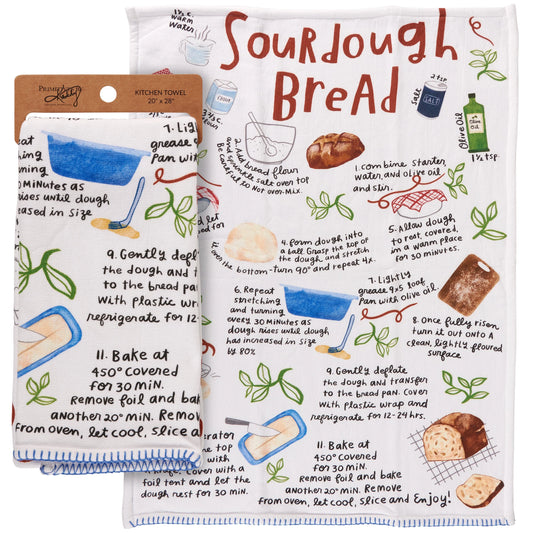 PRIMITIVES
Kathy
KITCHEN TOWEL
20" x 28"
7. Lightly
grease 9x
Pan with
30 MINutes as
rises until dough
increased in Size
9. Gently deflate
the dough and transfer
to the bread pan.
With plastic wrap
refrigerate for 12-
11. Bake at
450° covered
for 30 MIN.
Remove foil and bake
another 20° MIN. Remove
from oven, let cool, slice and
1½ c.
warm
Water
SOURDOUGH
BREAD
Flour
2 tsp
Salt
SALT
Olive Oil
Olive
Oil
1½ tsp
2. Add bread flour
and sprinkle salt over top
Be careful to Not over Mix.
1. Combine starter,
water, and olive oil
and stir.
4. Form dough into
a ball. Grasp the top of
the dough, and stretch
it over the bottom-turn 90° and repeat 4x.
5. Allow dough
to rest, covered,
in a warm place
for 30 minutes.
6. Repeat
stretching
and turning
every 30 MINutes as
dough rises until dough
has increased in Size
by 80%
7. Lightly
grease 9x5 loaf
Pan with olive oil.
8. Once fully risen
turn it out onto A
clean, lightly floured
surface
9. Gently deflate
the dough and transfer
to the bread pan. Cover
with plastic wrap and
refrigerate for 12-24 hrs.
Cover with a
foil tent and let the
dough rest for 30 min.
11. Bake at
450° covered
for 30 MIN.
Remove foil and bake
another 20° MIN. Remove
from oven, let cool, slice and Enjoy!